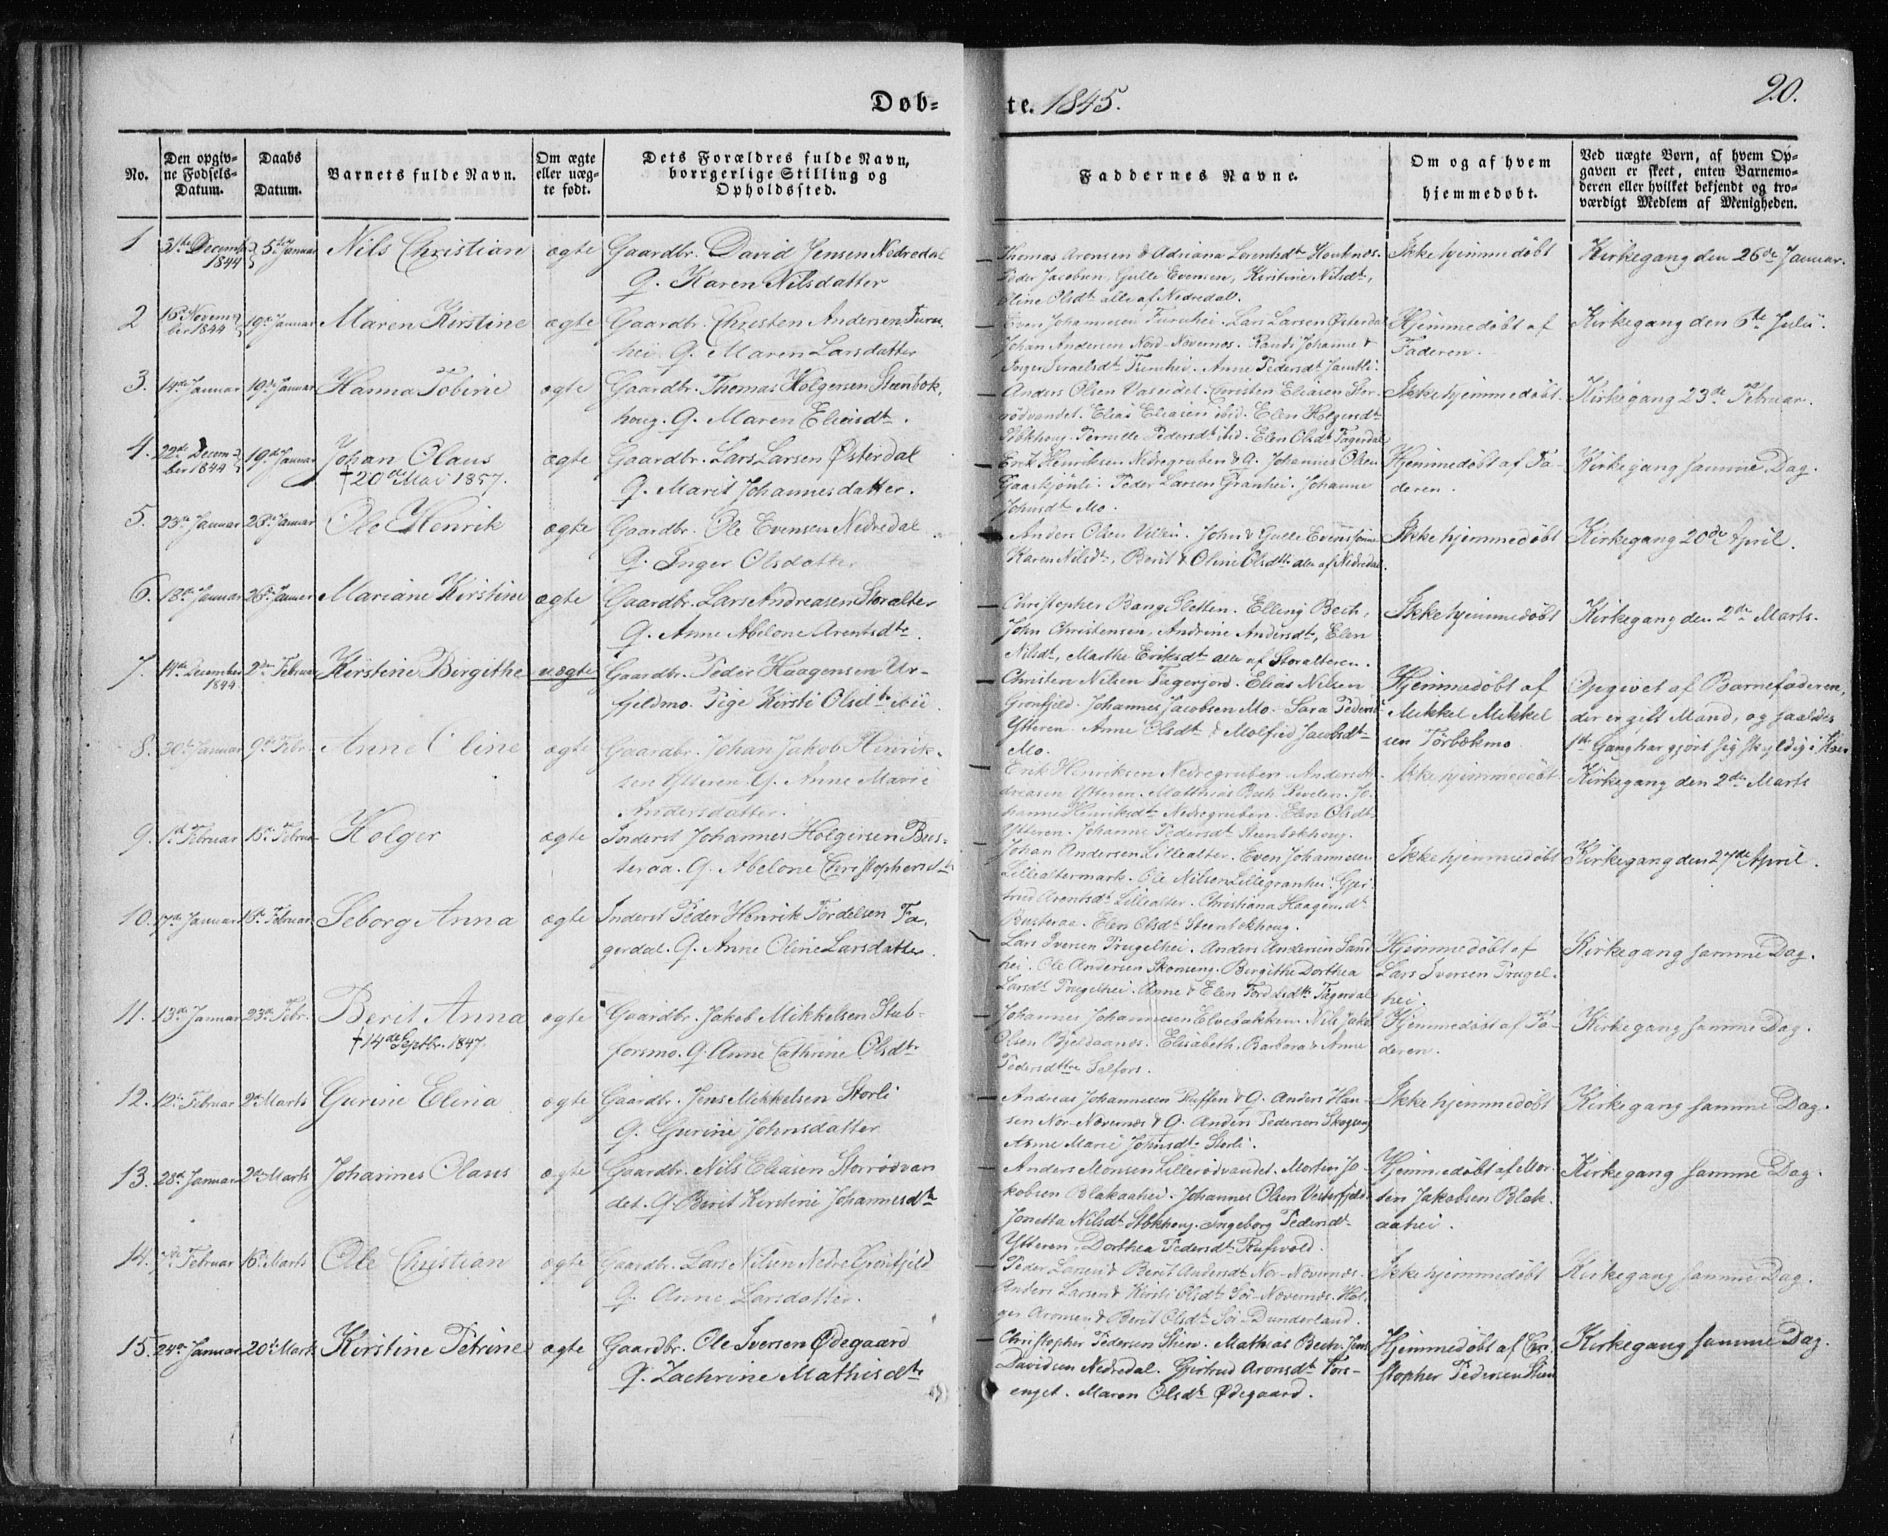 Døb-te. 1845.
20.
No.
Den opgiv-
ne Fødsels-
Datum.
Daabs
Datum.
Barnets fulde Navn.
Om ægte
eller uæg-
te født.
Dets Forældres fulde Navn,
borrgerlige Stilling og
Opholdssted.
Faddernes Navne.
Om og af hvem
hjemmedøbt.
Ved uægte Børn, af hvem Op-
gaven er skeet, enten Barnemo-
deren eller hvilket bekjendt og tro-
værdigt Medlem af Menigheden.
1 31te Decemb. 1844 5te Januar Nils Christian ægte Gaardbr. David Jensen Nedredal
Q. Karen Nilsdatter
Thomas Aronsen & Adriana Lorentsdt
Peder Jacobsen, Gulle Evensen, Kirstine Nilsdt,
Oline Olsdt alle af Nedredal.
Ikke hjemmedøbt
Kirkegang den 26de Januar.
2 15de Novem-
ber 1844 19de Januar Maren Kirstine ægte Gaardbr. Christen Andersen Furu-
hei. Q. Maren Larsdatter
Even Johannesen Furuhei. Lars Larsen Østerdal
Johan Andersen Nord-Nævernes. Randi Johanne &
Inger Israelsdt Furuhei. Anne Pedersdt Jamtli.
Hjemmedøbt af
Faderen.
Kirkegang den 6te Julii.
3. 14de Januar 19de Januar Hanna Tobine ægte Gaardbr. Thomas Holgersen Steenbok-
houg. Q. Maren Eliasdt.
Anders Olsen Vaseidet. Christen Eliasen Stor-
rødvandet. Elias Eliasen ibid. Elen Holgersdt
Stbkhoug. Pernille Pedersdt ibid. Elen Olsdt Fagerdal
Ikke hjemmedøbt.
Kirkegang 23de Februar.
4. 22de Decem-
ber 1844 19de Januar Johan Olaus ægte Gaardbr. Lars Larsen Østerdal
† 20de Mai 1857.
Q. Marit Johannesdatter.
Erik Henriksen Nedregruben & Q. Johannes Olsen
Gaaskjønli. Peder Larsen Granhei. Johanne
Johnsdt Mo.
Hjemmedøbt af Fa-
deren.
Kirkegang samme Dag.
5. 23de Januar 25de Januar Ole Henrik ægte Gaardbr. Ole Evensen Nedredal
Q. Inger Olsdatter
Anders Olsen John & Gulle Evensønner
Karen Nilsdt, Berit & Oline Olsdtr alle af Nedredal.
Ikke hjemmedøbt
Kirkegang 20de April.
6. 18de Januar 26de Januar Mariane Kirstine ægte Gaardbr. Lars Andreasen Storalter
Q. Anne Abelone Arentsdtr.
Christopher Bang Sletten. Elling Bech,
John Christensen, Andrine Andersdt, Elen
Nilsdt, Marthe Eriksdt alle af Storalteren.
Ikke hjemmedøbt
Kirkegang den 2de Marts.
7. 14de December
1844 2den Februar Kirstine Birgithe uægte Gaardbr. Peder Haagensen Ur-
fjeldmo. Pige Kirsti Olsdtr ibid.
Christen Nilsen Fagerjord. Elias Nilsen
Grønfjeld. Johannes Jacobsen Mo. Sara Pedersdt
Ytteren. Anne Olsdt & Molfrid Jacobsdt
Mo.
Hjemmedøbt af
Mikkel Mikkel
sen Tørbækmo
Opgivet af Barnefaderen,
der er gift Mand, og saaledes
1ste Gang har gjort sig skyldig i Hor.
8. 20de Januar 9de Febr. Anne Oline ægte Gaardbr. Johan Jakob Henrik-
sen Ytteren. Q. Anne Marie
Andersdatter.
Erik Henriksen Nedregruben. Anders An-
dreasen Ytteren. Matthias Bech Jo-
hanne Henriksdt Nedregruben. Elen Olsdt
Ytteren. Johanne Pedersdt Steenbokhoug.
Ikke hjemmedøbt
Kirkegang den 2den Marts
9. 1ste Februar 15de Februar Holger ægte Inderst Johannes Holgersen Bus-
teraa. Q. Abelone Christophersdt
Johan Andersen Lillealter. Even Johannesen
Lillealtermark. Ole Nilsen Lillegranhei. Gjer-
trud Arentsdt Lillealter. Christiana Haagensdt
Busteraa. Elen Olsdt Steenbokhoug.
Ikke hjemmedøbt
Kirkegang den 27de April.
10. 17de Januar Februar Seborg Anna ægte Inderst Peder Henrik Fordelsen Fa-
gerdal. Q. Anne Oline Larsdatter.
Lars Iversen Trugelhei. Anders Andersen Sand-
hei. Ole Andersen Skonseng. Birgithe Dorthea
Larsdt Trugelhei. Anne & Elen Fordelsdtr Fagerdal
Hjemmedøbt af
Lars Iversen Trugel-
hei.
Kirkegang samme Dag.
11. 13de Januar 23de Febr. Berit Anna ægte Gaardbr. Jakob Mikkelsen Stub-
† 14de Septbr. 1847.
forsmo. Q. Anne Cathrine Olsdt.
Johannes Johannesen Elvebakken. Nils Jakob
Olsen Bjeldaanes. Elisabeth, Barbara & Anne
Pedersdttre Selfors.
Hjemmedøbt af Fa-
deren.
Kirkegang samme Dag.
12. 12te Februar 2den Marts Gurine Elina ægte Gaardbr. Jens Mikkelsen Storli
Q. Gurine Johnsdatter
Andreas Johannesen & Q. Anders Han-
sen Nor-Nævernes & Q. Anders Pedersen
Anne Marie Johnsdt Storli.
Ikke hjemmedøbt
Kirkegang samme Dag.
13. 28de Januar 2den Marts Johannes Olaus ægte Gaardbr. Nils Eliasen Storrødvan
det. Q. Berit Kirstine Johannesdt
Anders Monsen Lillerødvandet. Morten Ja-
kobsen Blakaahei. Johannes Olsen Vesterfjeld
Jonetta Nilsdt Stbkhoug. Ingeborg Pedersdt
Ytteren. Dorthea Pedersdt Rufsvold.
Hjemmedøbt af Mor-
ten Jakobsen Blak-
aahei.
Kirkegang samme Dag.
14. Februar 16de Marts Ole Christian ægte Gaardbr. Lars Nilsen Nedre Grønfjeld
Q. Anne Larsdatter.
Peder Larsen & Berit Andersdt Nor-Nævernes.
Anders Larsen & Kirsti Olsdt Sør-Nævernes. Hol-
ger Aronsen & Berit Olsdt Sør-Dunderland.
Ikke hjemmedøbt
Kirkegang samme Dag.
15. 24de Januar 20de Marts Kirstine Petrine ægte Gaardbr. Ole Iversen Ødegaard
Q. Zachrine Mathisdtr
Christopher Pedersen Stien. Mathias Bech. Jens
Davidsen Nedredal. Gjertrud Aronsdt Fors-
enget. Maren Olsdt Ødegaard.
Hjemmedøbt af Chri-
stopher Pedersen Stien
Kirkegang samme Dag.